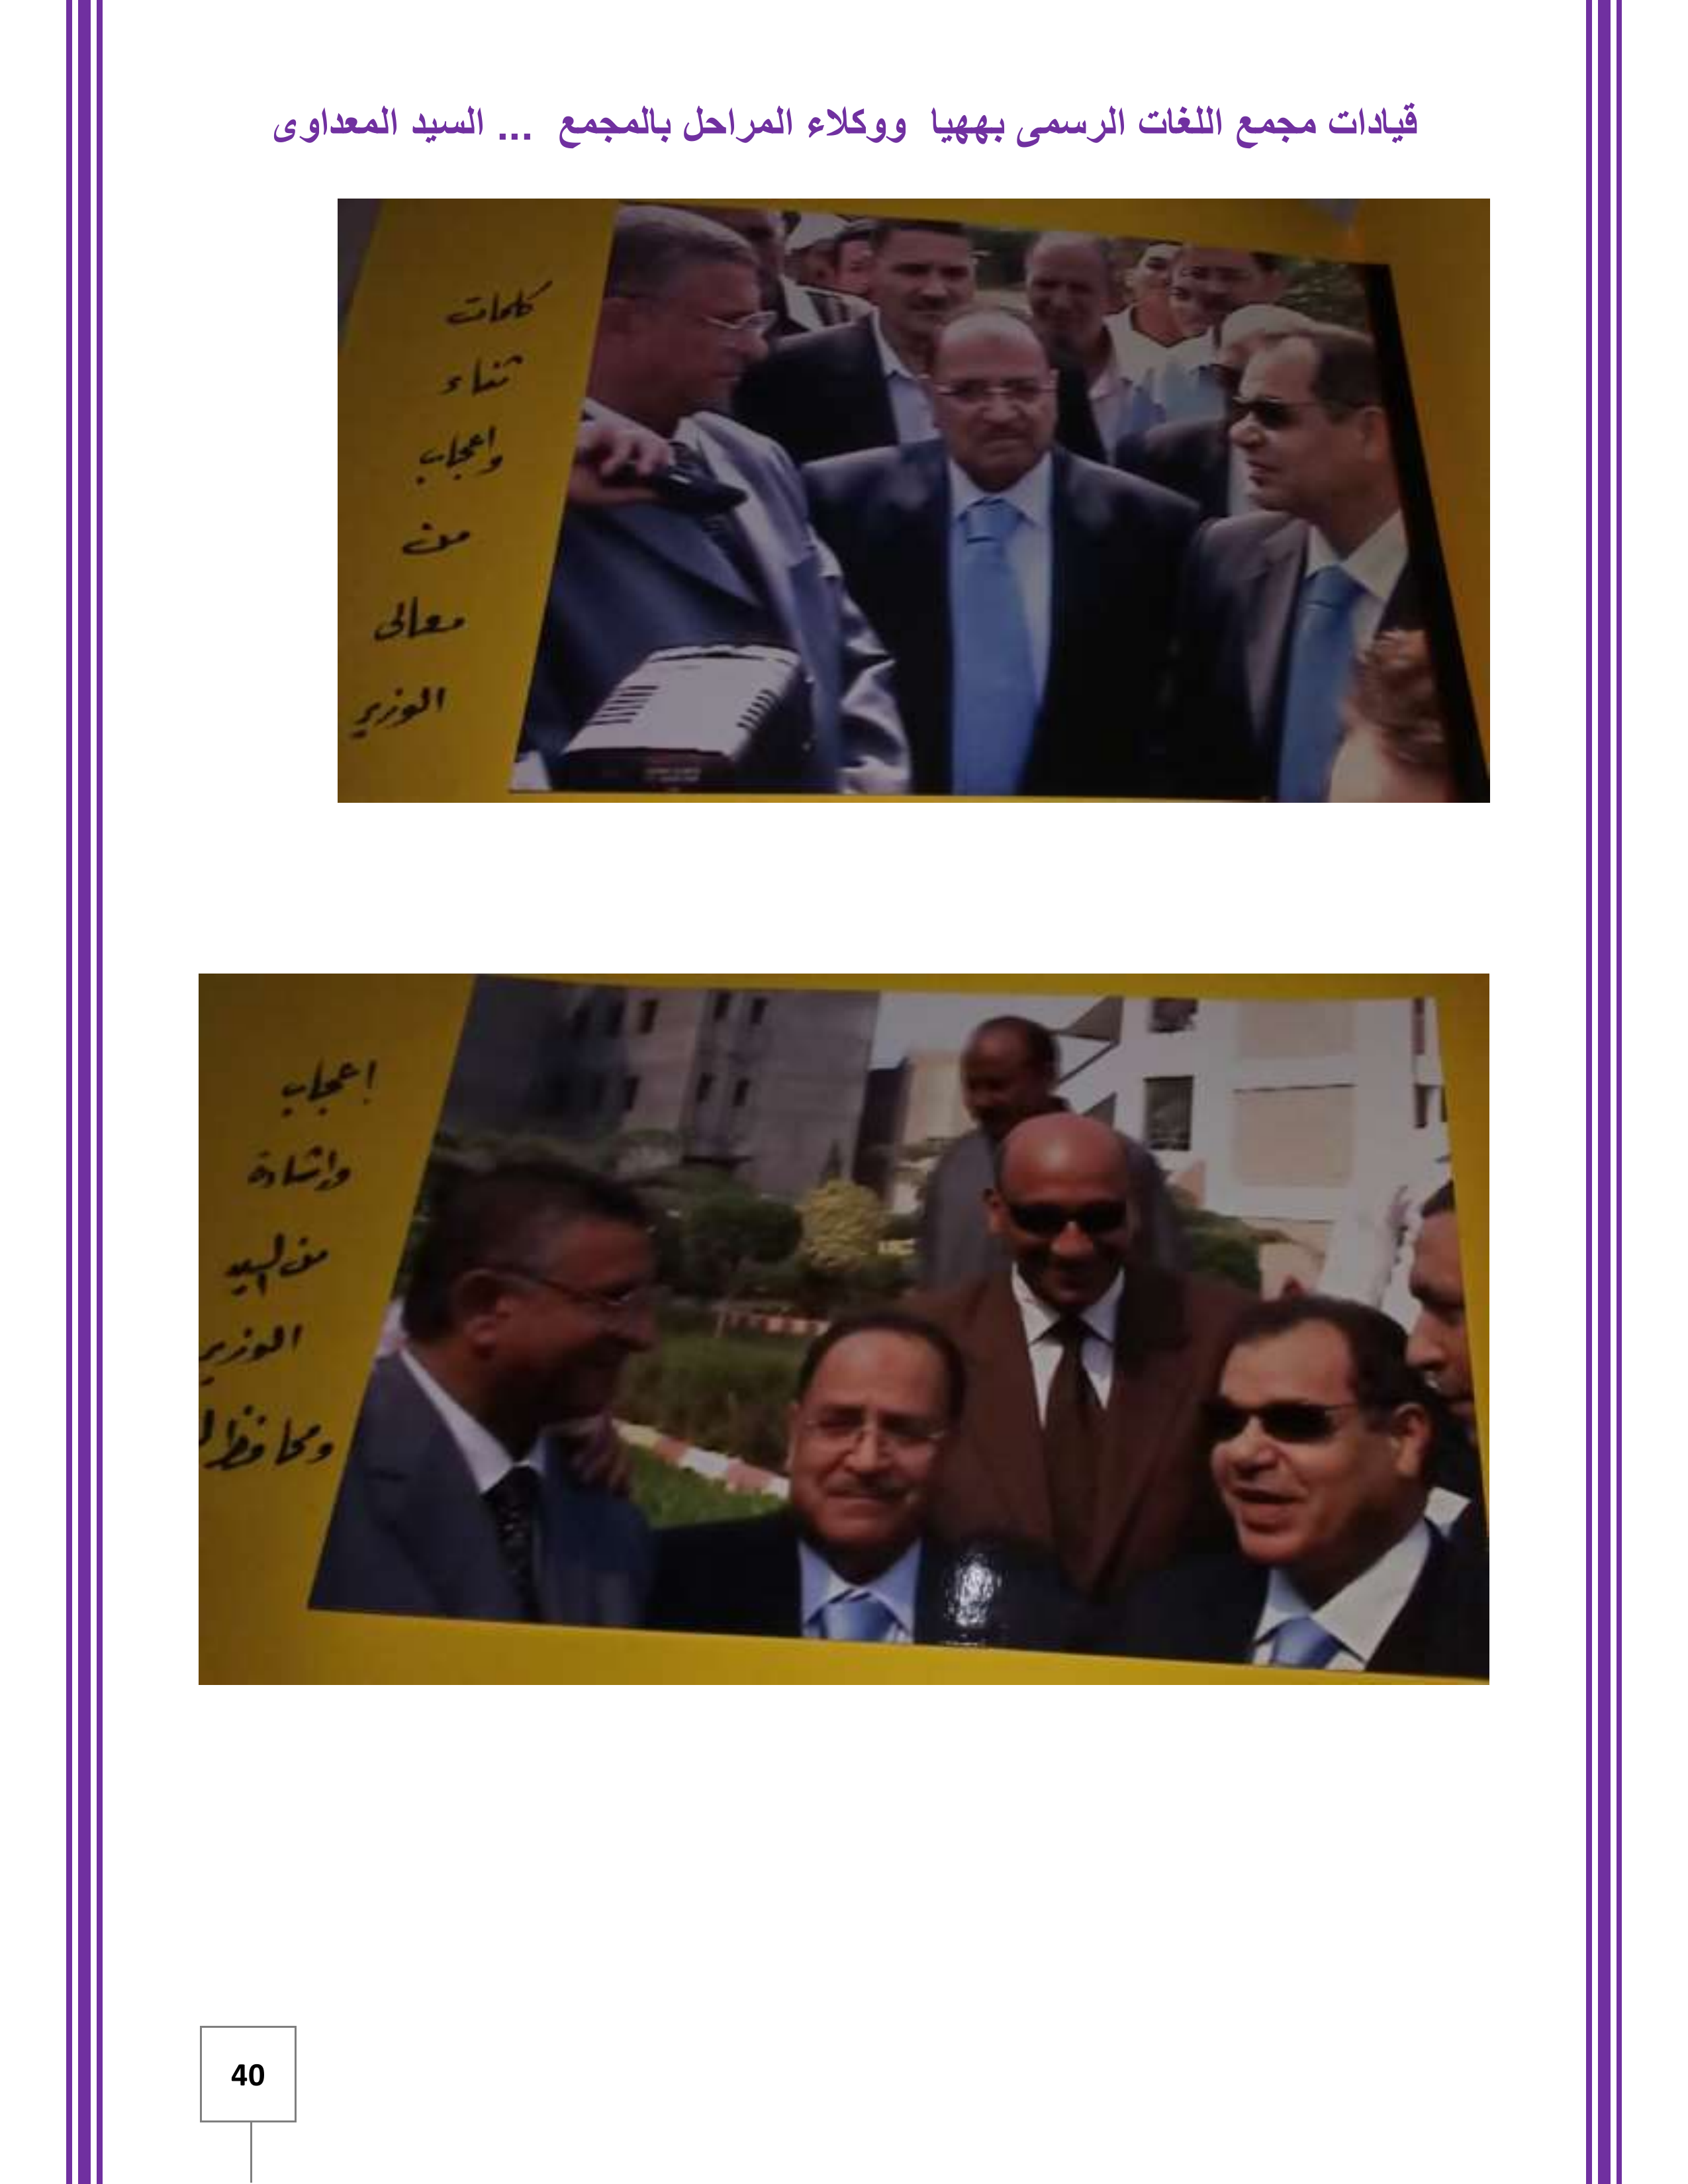 قيادات مجمع اللغات الرسمى بههيا ووكلاء المراحل بالمجمع ... السيد المعداوى
كلمات
ثناء
واعجاب
من
معالى
الوزير
إعجاب
وإشادة
من السيد
الوزير
ومحافظ
40